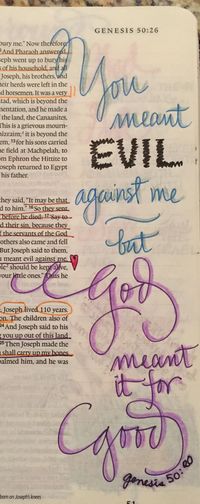 GENESIS 50:26
bury me.' Now therefore,
And Pharaoh answered,
seph went up to bury his
s of his household, and all
Joseph, his brothers, and
their herds were left in the
nd horsemen. It was a very
tad, which is beyond the
mentation, and he made a
the land, the Canaanites,
This is a grievous mourn-
Mizraim; it is beyond the
em, for his sons carried
e field at Machpelah, to
om Ephron the Hittite to
oseph returned to Egypt
his father.
they said, "It may be that
d to him." So they sent
before he died: 'Say to
d their sin, because they
f the servants of the God
others also came and fell
But Joseph said to them,
u meant evil against me,
ple should be kept alive,
your little ones." Thus he
Joseph lived 110 years.
on. The children also of
And Joseph said to his
g you up out of this land
Then Joseph made the
u shall carry up my bones
balmed him, and he was
born on Joseph's knees
You
meant
EVIL
against me
but
God
meant
it for
good
genesis 50:20
51